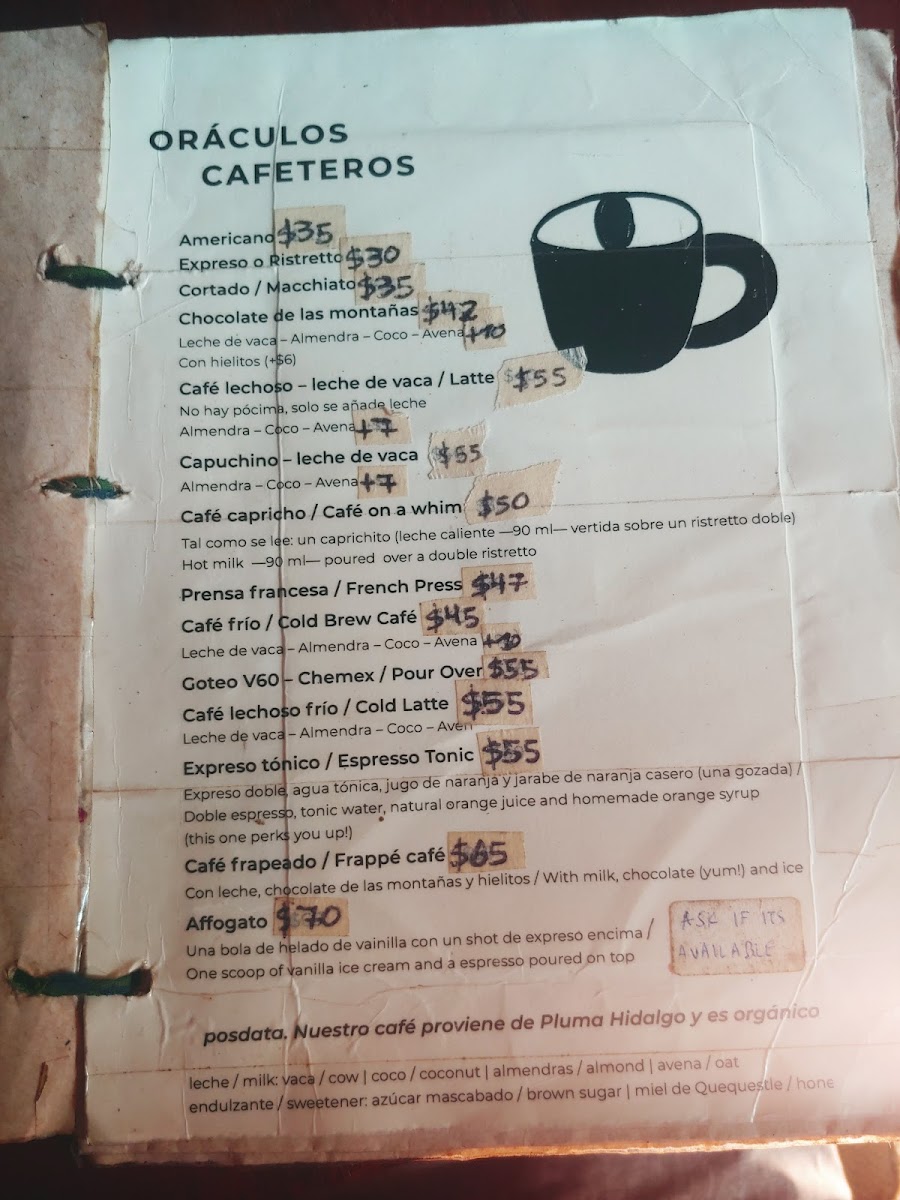 ORÁCULOS
CAFETEROS
Americano $35
Expreso o Ristretto $30
Cortado / Macchiato $35
Chocolate de las montañas $42
Leche de vaca – Almendra – Coco – Avena +10
Con hielitos (+$6)
Café lechoso – leche de vaca / Latte $55
No hay pócima, solo se añade leche
Almendra – Coco – Avena +7
Capuchino – leche de vaca $55
Almendra – Coco – Avena +7
Café capricho / Café on a whim $50
Tal como se lee: un caprichito (leche caliente —90 ml— vertida sobre un ristretto doble)
Hot milk —90 ml— poured over a double ristretto
Prensa francesa / French Press $47
Café frío / Cold Brew Café $45
Leche de vaca – Almendra – Coco – Avena +10
Goteo V60 – Chemex / Pour Over $55
Café lechoso frío / Cold Latte $55
Leche de vaca – Almendra – Coco – Aven
Expreso tónico / Espresso Tonic $55
Expreso doble, agua tónica, jugo de naranja y jarabe de naranja casero (una gozada) /
Doble espresso, tonic water, natural orange juice and homemade orange syrup
(this one perks you up!)
Café frapeado / Frappé café $65
Con leche, chocolate de las montañas y hielitos / With milk, chocolate (yum!) and ice
Affogato $70
Una bola de helado de vainilla con un shot de expreso encima /
One scoop of vanilla ice cream and a espresso poured on top
ASK IF ITS
AVAILABLE
posdata. Nuestro café proviene de Pluma Hidalgo y es orgánico
leche / milk: vaca / cow | coco / coconut | almendras / almond | avena / oat
endulzante / sweetener: azúcar mascabado / brown sugar | miel de Quequestle / hone